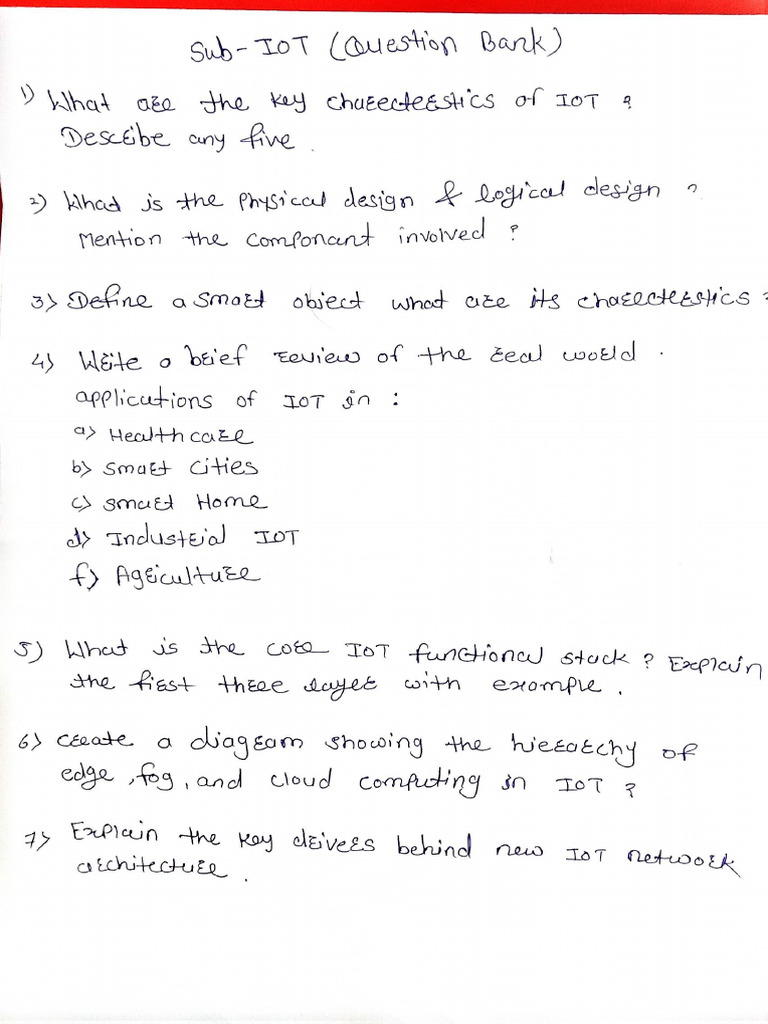 Sub-IOT (Question Bank)
1) What are the key charecterstics of IOT ?
Describe any five.
2) What is the physical design & logical design ?
Mention the componant involved ?
3) Define a smart object what are its charecterstics ?
4) Write a brief review of the real world.
applications of IOT in :
a) Healthcare
b) Smart Cities
c) Smart Home
d) Industrial IOT
f) Agriculture
5) What is the core IOT functional stack ? Explain
the first three layer with example.
6) Create a diagram showing the hierarchy of
edge, fog, and cloud computing in IOT ?
7) Explain the key drivers behind new IOT network
architecture.